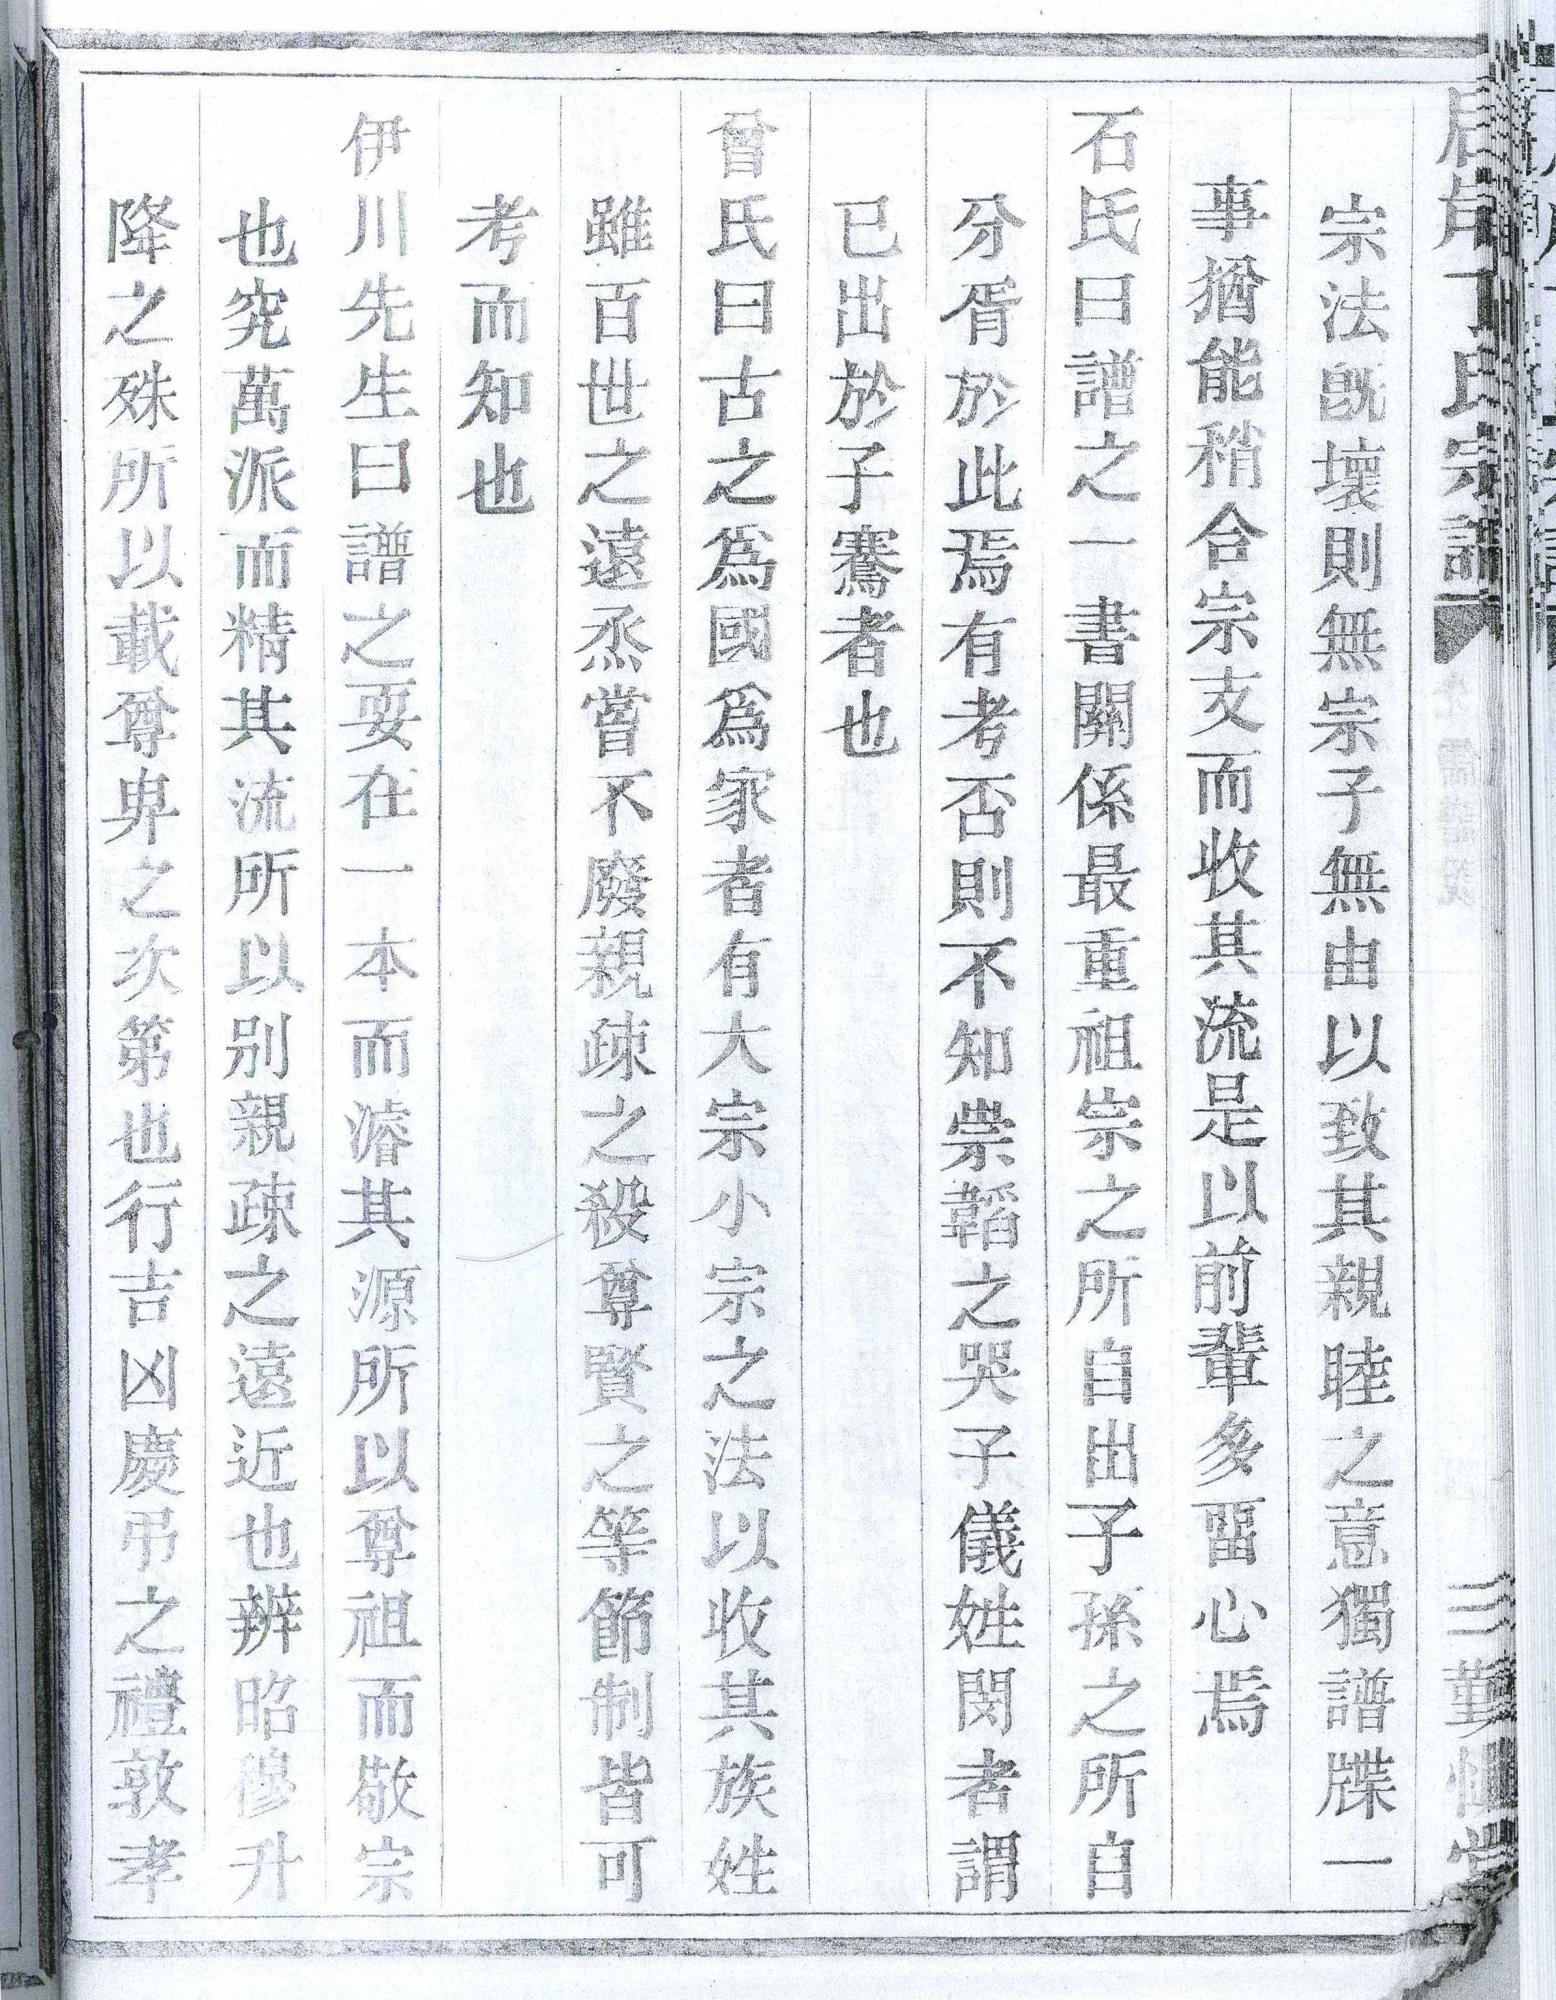 丁氏宗譜
三
宗法旣壞則無宗子無由以致其親睦之意獨譜牒一
事猶能稍合宗支而收其流是以前輩多畱心焉
石氏曰譜之一書關係最重祖宗之所自出子孫之所自
分胥於此焉有考否則不知崇韜之哭子儀姓閔者謂
已出於子騫者也
曾氏曰古之爲國爲家者有大宗小宗之法以收其族姓
雖百世之遠烝嘗不廢親疎之殺尊賢之等節制皆可
考而知也
伊川先生曰譜之要在一本而濬其源所以尊祖而敬宗
也究萬派而精其流所以别親疎之遠近也辨昭穆升
降之殊所以載尊卑之次第也行吉凶慶弔之禮敦孝